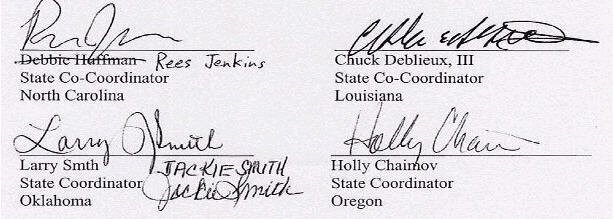 Debbie Huffman Rees Jenkins
State Co-Coordinator
North Carolina
Chuck Deblieux, III
State Co-Coordinator
Louisiana
Larry Smith
Larry Smth JACKIE SMITH
State Coordinator Jackie Smith
Oklahoma
Holly Chaim
Holly Chaimov
State Coordinator
Oregon